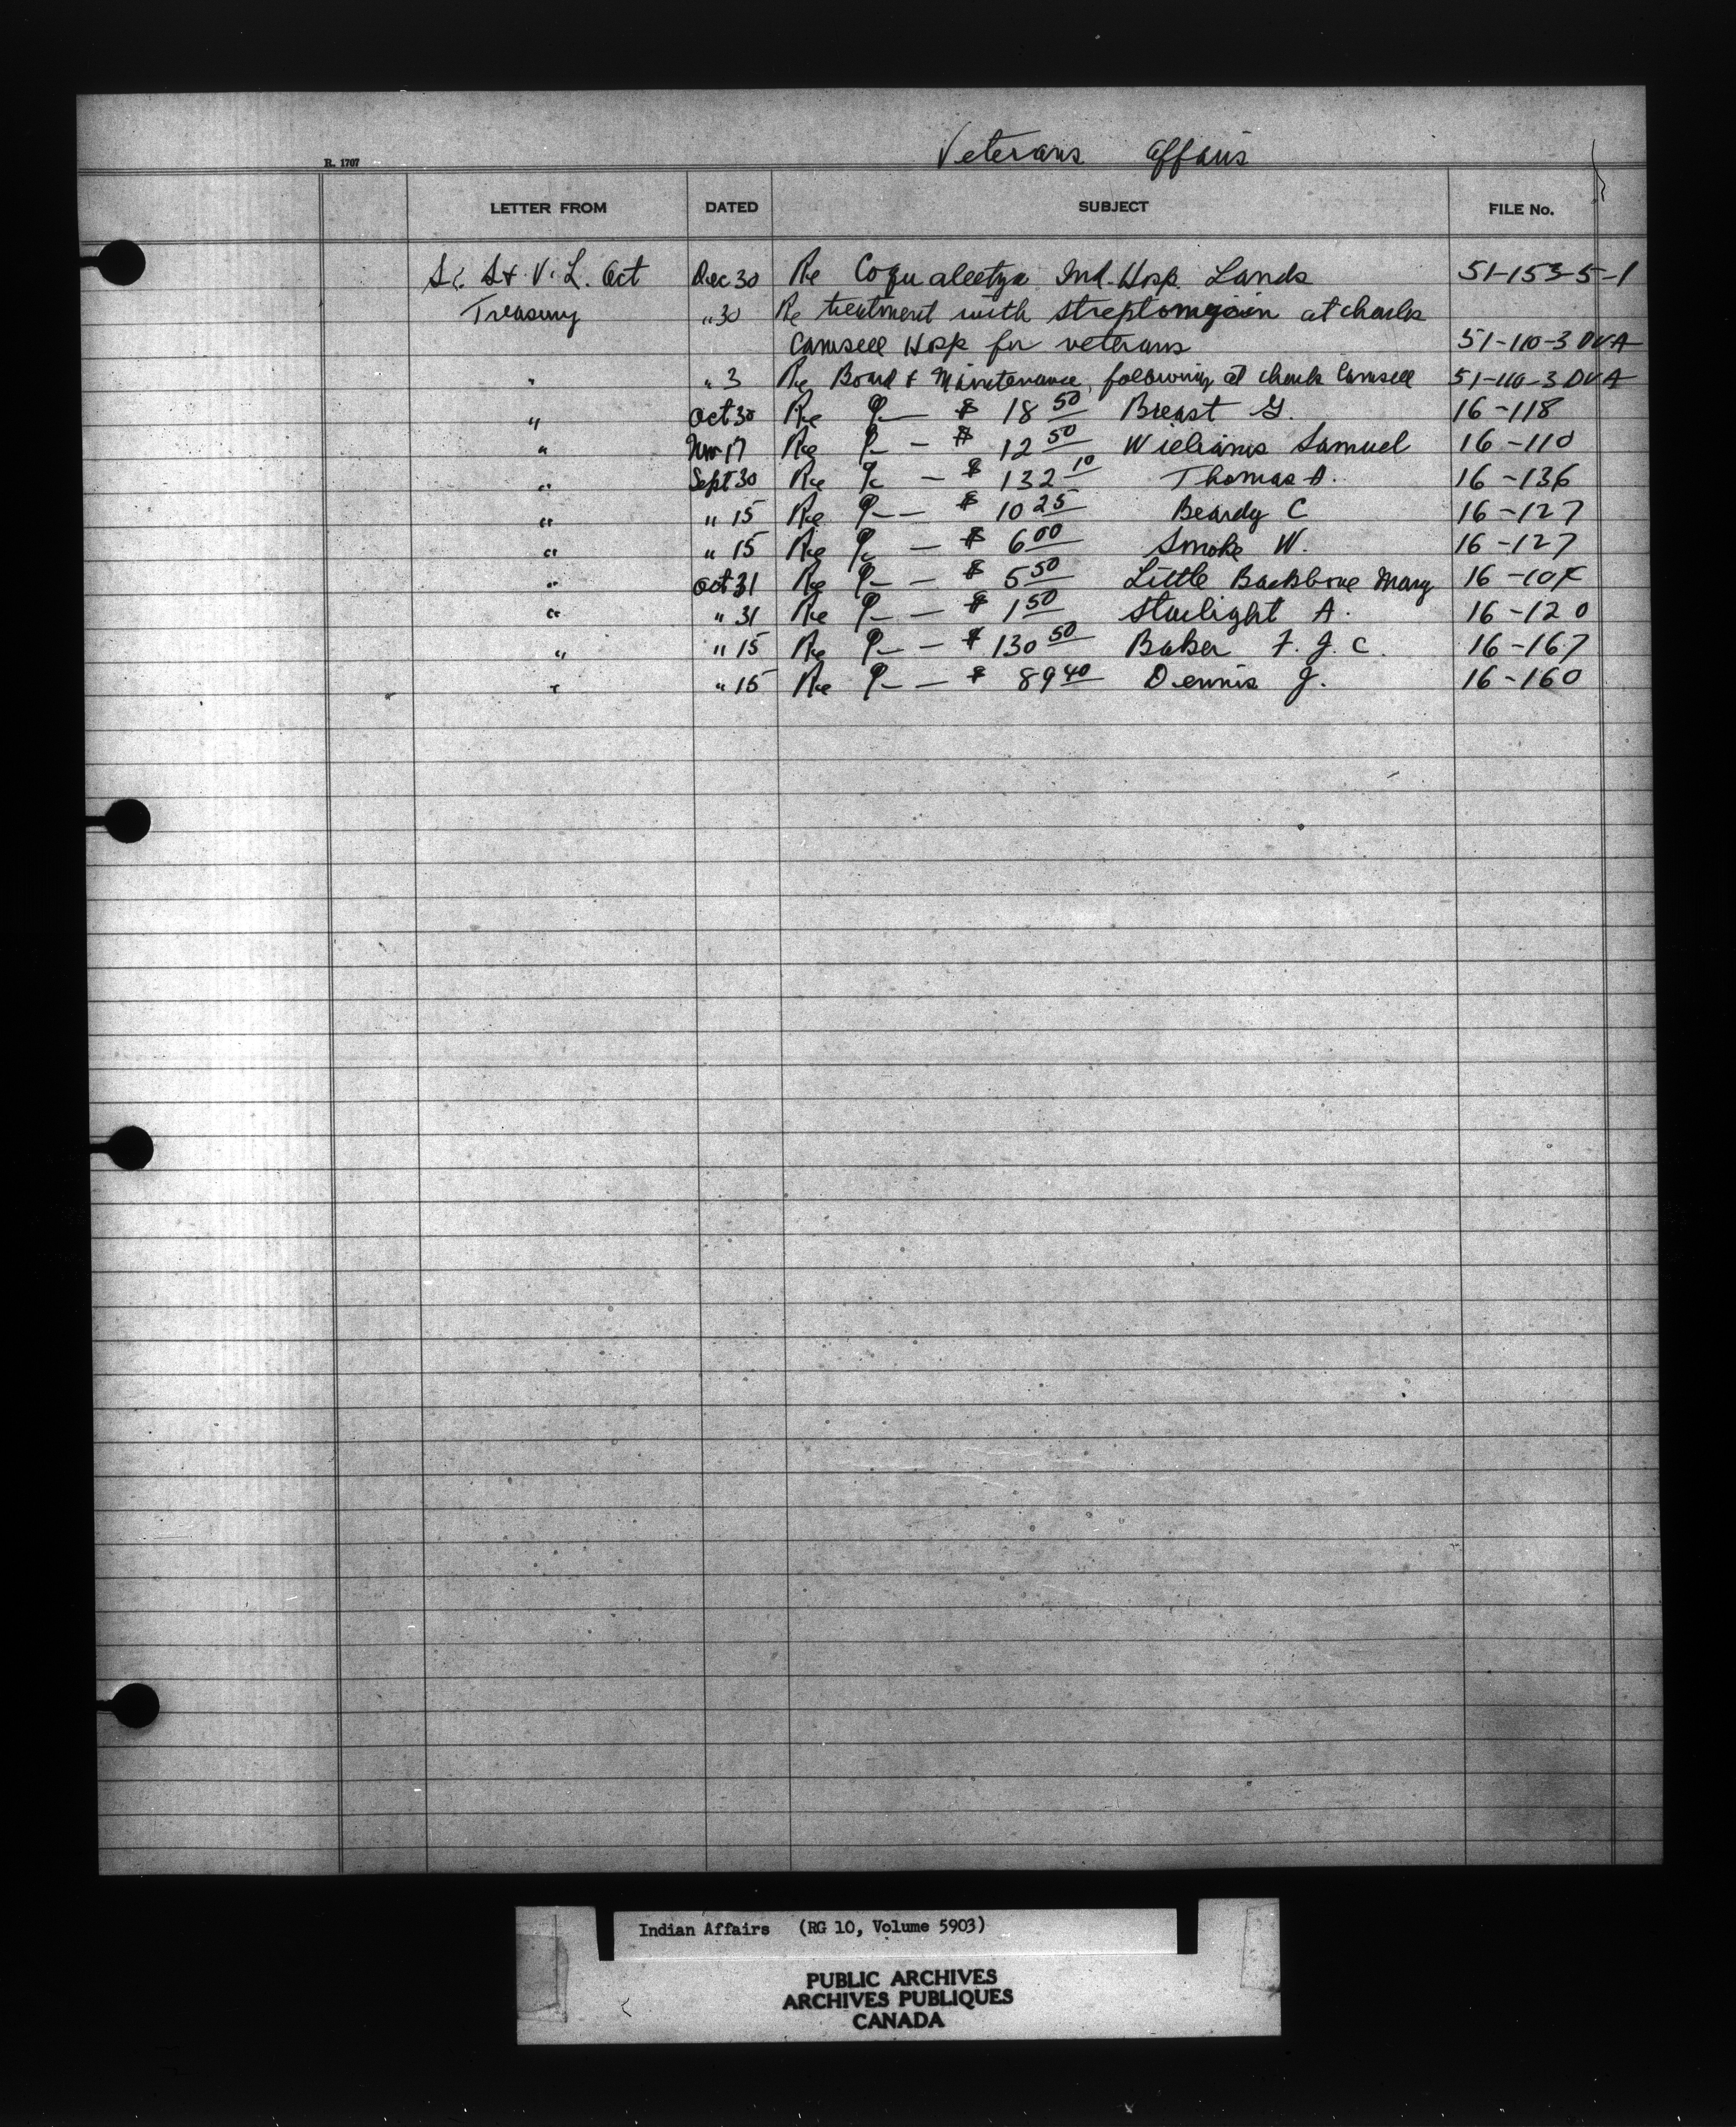 Veterans Affairs
R. 1707
LETTER FROM DATED SUBJECT FILE No.
S. S & V. L. Act Dec 30 Re Coqualeetza Ind. Hosp. Lands 51-153-5-1
Treasury " 30 Re treatment with streptomycin at Charles
Camsell Hosp for veterans 51-110-3 DVA
" " 3 Re Board & Maintenance, following at Charles Camsell 51-110-3 DVA
" Oct 30 Re — $ 18 50 Breast G. 16-118
" Nov 17 Re — $ 12 50 Williams Samuel 16-110
" Sept 30 Re — $ 132 10 Thomas A. 16-136
" " 15 Re — $ 10 25 Beardy C 16-127
" " 15 Re — $ 6 00 Smoke W. 16-127
" Oct 31 Re — $ 5 50 Little Backbone Mary
" " 31 Re — $ 1 50 Starlight A. 16-120
" " 15 Re — $ 130 50 Baker F. J. C. 16-167
" " 15 Re — $ 89 40 Dennis J. 16-160
Indian Affairs (RG 10, Volume 5903)
PUBLIC ARCHIVES
ARCHIVES PUBLIQUES
CANADA